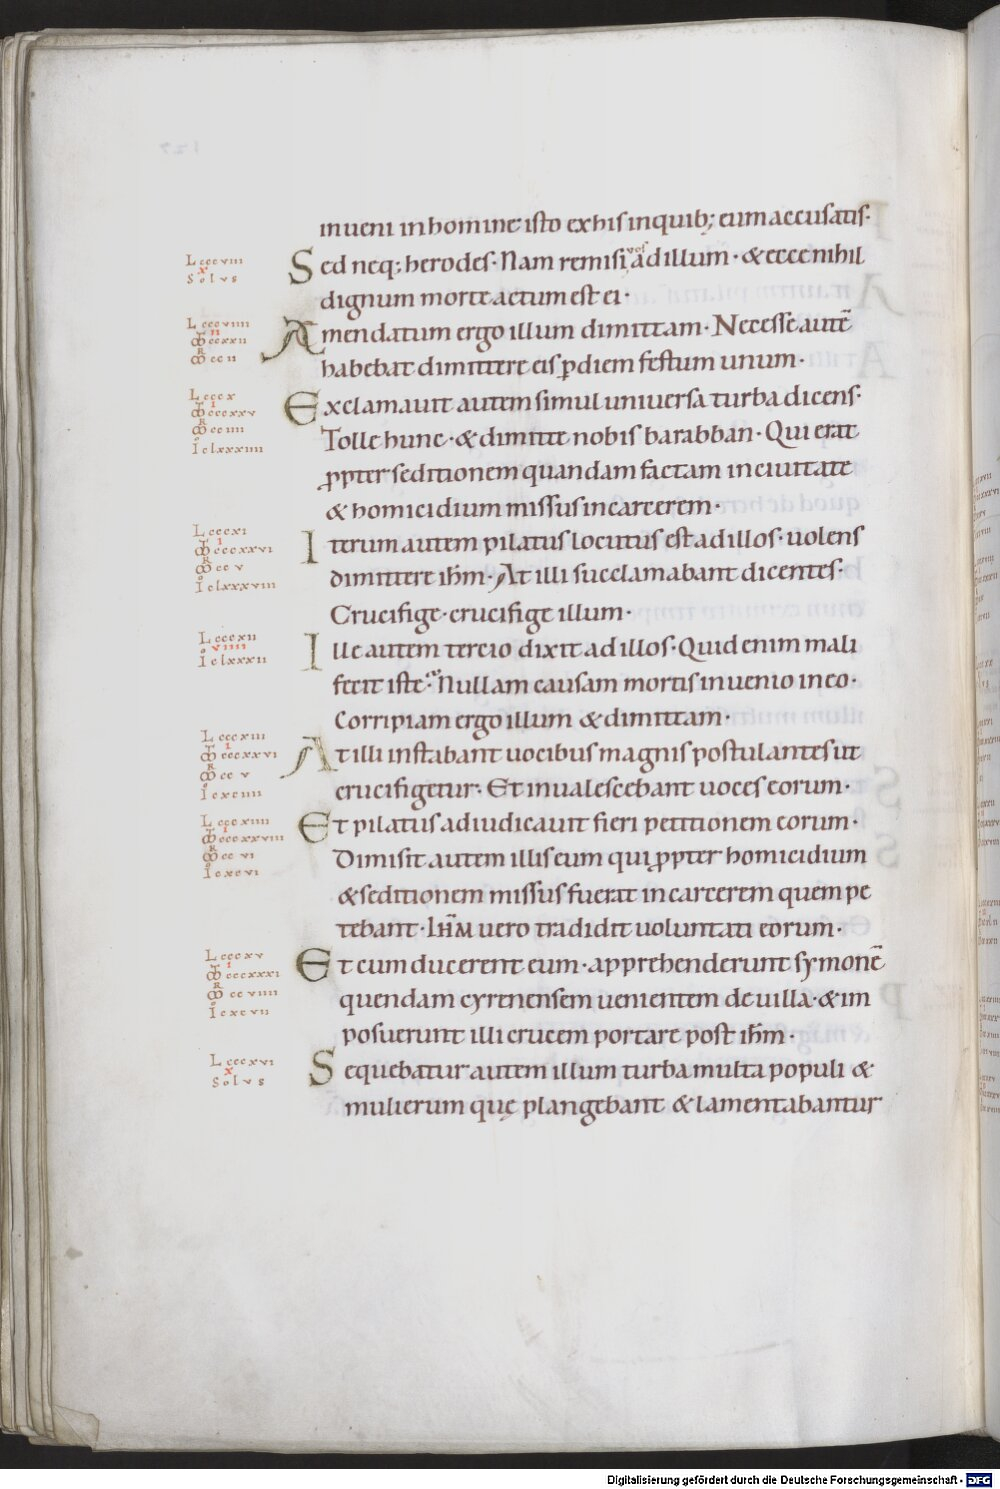 inueni in homine isto ex his in quib; eum accusatis·
Sed neq; herodes· Nam remisi uos ad illum· & ecce nihil
dignum morte actum est ei·
Amendatum ergo illum dimittam· Necesse autē
habebat dimittere eis p diem festum unum·
Exclamauit autem simul uniuersa turba dicens·
Tolle hunc· & dimitte nobis barabban· Qui erat
ppter seditionem quandam factam in ciuitate
& homicidium missus in carcerem·
Iterum autem pilatus locutus est ad illos· uolens
dimittere ihm̄· At illi succlamabant dicentes·
Crucifige· crucifige illum·
Ille autem tercio dixit ad illos· Quid enim mali
fecit iste· Nullam causam mortis inuenio in eo·
Corripiam ergo illum & dimittam·
At illi instabant uocibus magnis postulantes ut
crucifigetur· Et inualescebant uoces eorum·
Et pilatus adiudicauit fieri petitionem eorum·
Dimisit autem illis eum qui ppter homicidium
& seditionem missus fuerat in carcerem quem pe
tebant· IHM̄ uero tradidit uoluntati eorum·
Et cum ducerent eum· apprehenderunt symonē
quendam cyrenensem uenientem de uilla· & im
posuerunt illi crucem portare post ihm̄·
Sequebatur autem illum turba multa populi &
mulierum quę plangebant & lamentabantur
Lcccviii
x
Solvs
Lcccviiii
Lcccx
Lcccxi
Lcccxii
Lcccxiii
Lcccxiiii
Lcccxv
Lcccxvi
x
Solvs
Digitalisierung gefördert durch die Deutsche Forschungsgemeinschaft - DFG